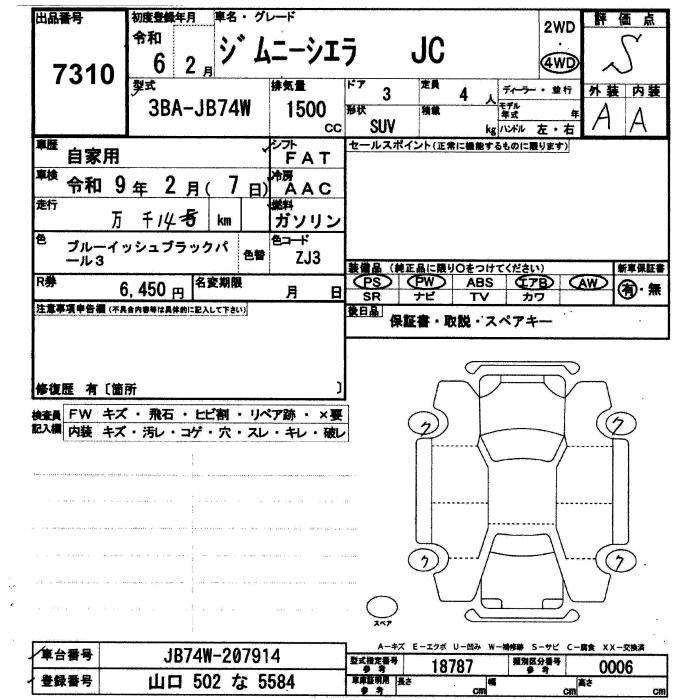 出品番号
7310
初度登録年月
令和
6 2月
車名・グレード
ジムニーシエラ JC
2WD
・
4WD
評価点
S
外装 内装
A A
型式
3BA-JB74W
排気量
1500
CC
ドア
3
定員
4人
形状
SUV
積載
kg
ディーラー・並行
モデル年式 年
ハンドル 左・右
車歴
自家用
シフト
FAT
車検
令和 9年 2月(7日)
冷房
AAC
走行
万 千14 km
燃料
ガソリン
色
ブルーイッシュブラックパール3
色替
色コード
ZJ3
R券
6,450円
名変期限
月 日
セールスポイント(正常に機能するものに限ります)
装備品 (純正品に限り○をつけてください)
PS PW ABS エアB AW
SR ナビ TV カワ
新車保証書
有・無
後日品
保証書・取説・スペアキー
注意事項申告欄(不具合内容等は具体的に記入して下さい)
修復歴 有〔箇所 〕
検査員記入欄
FW キズ・飛石・ヒビ割・リペア跡・×要
内装 キズ・汚レ・コゲ・穴・スレ・キレ・破レ
ク ク
ク ク
スペア
A-キズ E-エクボ U-凹み W-補修跡 S-サビ C-腐食 XX-交換済
車台番号
JB74W-207914
登録番号
山口 502 な 5584
型式指定番号
参考
18787
類別区分番号
参考
0006
車庫証明用
参考
長さ cm
幅 cm
高さ cm